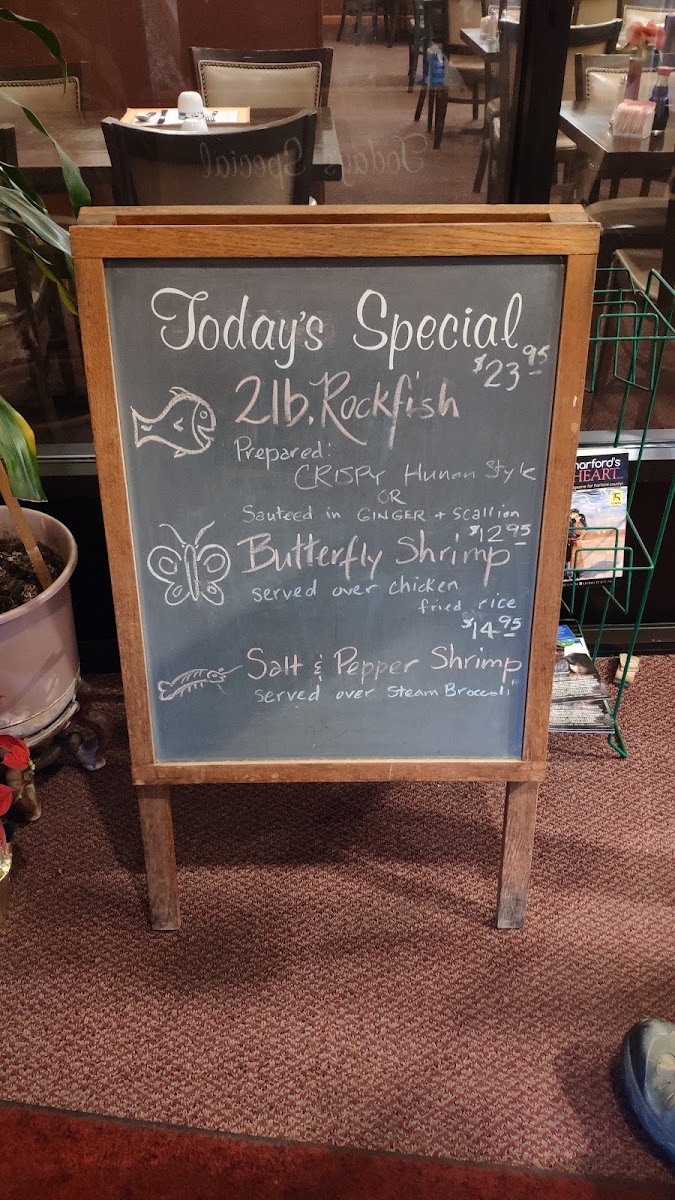 Today's Special
$23.95
2lb. Rockfish
Prepared:
CRISPY Hunan Style
OR
Sauteed in GINGER + Scallion
$12.95
Butterfly Shrimp
served over chicken
fried rice
$14.95
Salt & Pepper Shrimp
served over Steam Broccoli
harford's
HEART
Today's Special